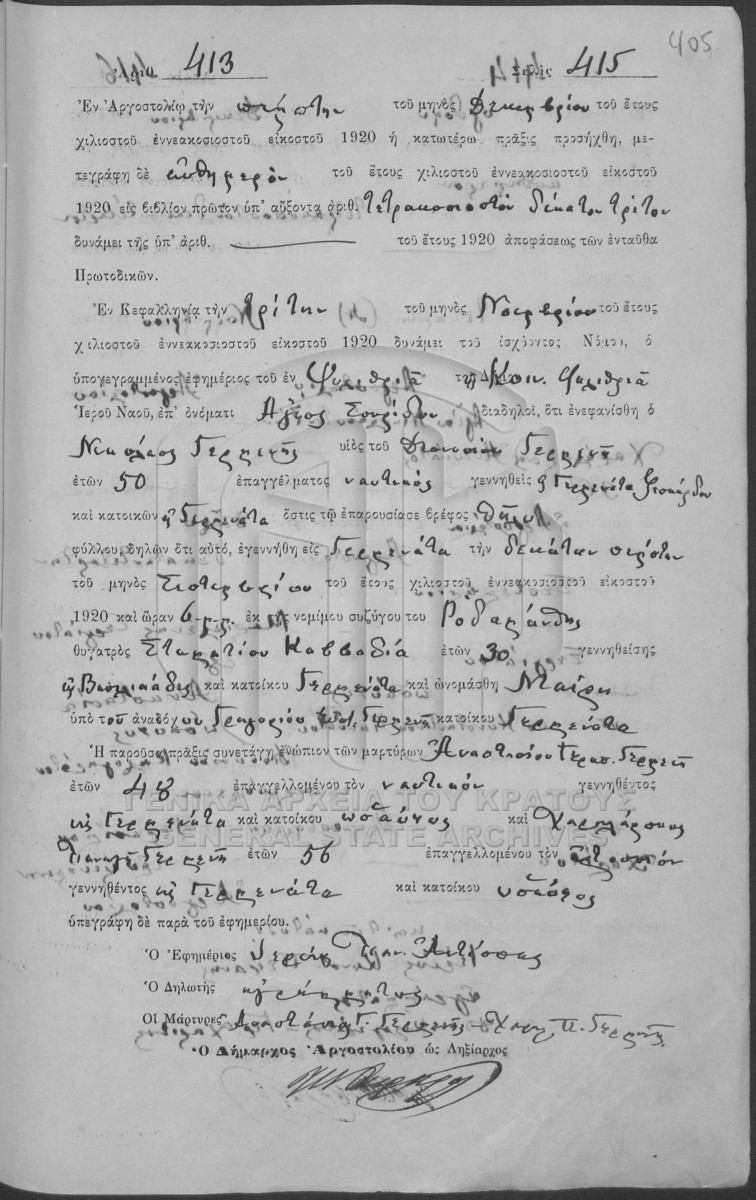 405
Ἀριθ. 413 Σελὶς 415
Ἐν Ἀργοστολίῳ τὴν πέμπτην τοῦ μηνὸς Δεκεμβρίου τοῦ ἔτους
χιλιοστοῦ ἐννεακοσιοστοῦ εἰκοστοῦ 1920 ἡ κατωτέρω πρᾶξις προσήχθη, με-
τεγράφη δὲ αὐθημερὸν τοῦ ἔτους χιλιοστοῦ ἐννεακοσιοστοῦ εἰκοστοῦ
1920 εἰς βιβλίον πρῶτον ὑπ' αὔξοντα ἀριθ. τετρακοσιοστὸν δέκατον τρίτον
δυνάμει τῆς ὑπ' ἀριθ. τοῦ ἔτους 1920 ἀποφάσεως τῶν ἐνταῦθα
Πρωτοδικῶν.
Ἐν Κεφαλληνίᾳ τὴν τρίτην τοῦ μηνὸς Νοεμβρίου τοῦ ἔτους
χιλιοστοῦ ἐννεακοσιοστοῦ εἰκοστοῦ 1920 δυνάμει τοῦ ἰσχύοντος Νόμου, ὁ
ὑπογεγραμμένος ἐφημέριος τοῦ ἐν Ψιλιθριᾷ Κοιν. Ψιλιθριᾶ
Ἱεροῦ Ναοῦ, ἐπ' ὀνόματι Ἁγίος διαδηλοῖ, ὅτι ἐνεφανίσθη ὁ
Νικόλαος Γερμενῆς υἱὸς τοῦ Διονυσίου Γερμενῆ
ἐτῶν 50 ἐπαγγέλματος ναυτικός γεννηθεὶς Γερμενάτα Φισκάρδου
καὶ κατοικῶν Γερμενάτα ὅστις τῷ ἐπαρουσίασε βρέφος θῆλυ
φύλλου, δηλῶν ὅτι αὐτό, ἐγεννήθη εἰς Γερμενάτα τὴν δεκάτην πέμπτην
τοῦ μηνὸς Σεπτεμβρίου τοῦ ἔτους χιλιοστοῦ ἐννεακοσιοστοῦ εἰκοστοῦ
1920 καὶ ὥραν 6 μ.μ. ἐκ τῆς νομίμου συζύγου του Ροδαμάνθης
θυγατρὸς Σταματίου Καββαδία ἐτῶν 30 γεννηθείσης
καὶ κατοίκου Γερμενάτα καὶ ὠνομάσθη Μαίρη
ὑπὸ τοῦ ἀναδόχου Γρηγορίου Γερμενῆ κατοίκου Γερμενάτα
Ἡ παροῦσα πρᾶξις συνετάγη ἐνώπιον τῶν μαρτύρων Ἀναστασίου Γερασ. Γερμενῆ
ἐτῶν 48 ἐπαγγελλομένου τὸν ναυτικὸν γεννηθέντος
εἰς Γερμενάτα καὶ κατοίκου ὡσαύτως καὶ Χαραλάμπους
Παναγῆ Γερμενῆ ἐτῶν 56 ἐπαγγελλομένου τὸν
γεννηθέντος εἰς Γερμενάτα καὶ κατοίκου ὡσαύτως
ὑπεγράφη δὲ παρὰ τοῦ ἐφημερίου.
Ὁ Ἐφημέριος
Ὁ Δηλωτὴς ἀγράμματος
Οἱ Μάρτυρες Ἀναστάσιος Γ. Γερμενῆς - Χαρ. Π. Γερμενῆς
Ὁ Δήμαρχος Ἀργοστολίου ὡς Ληξίαρχος
ΓΕΝΙΚΑ ΑΡΧΕΙΑ ΤΟΥ ΚΡΑΤΟΥΣ
GENERAL STATE ARCHIVES